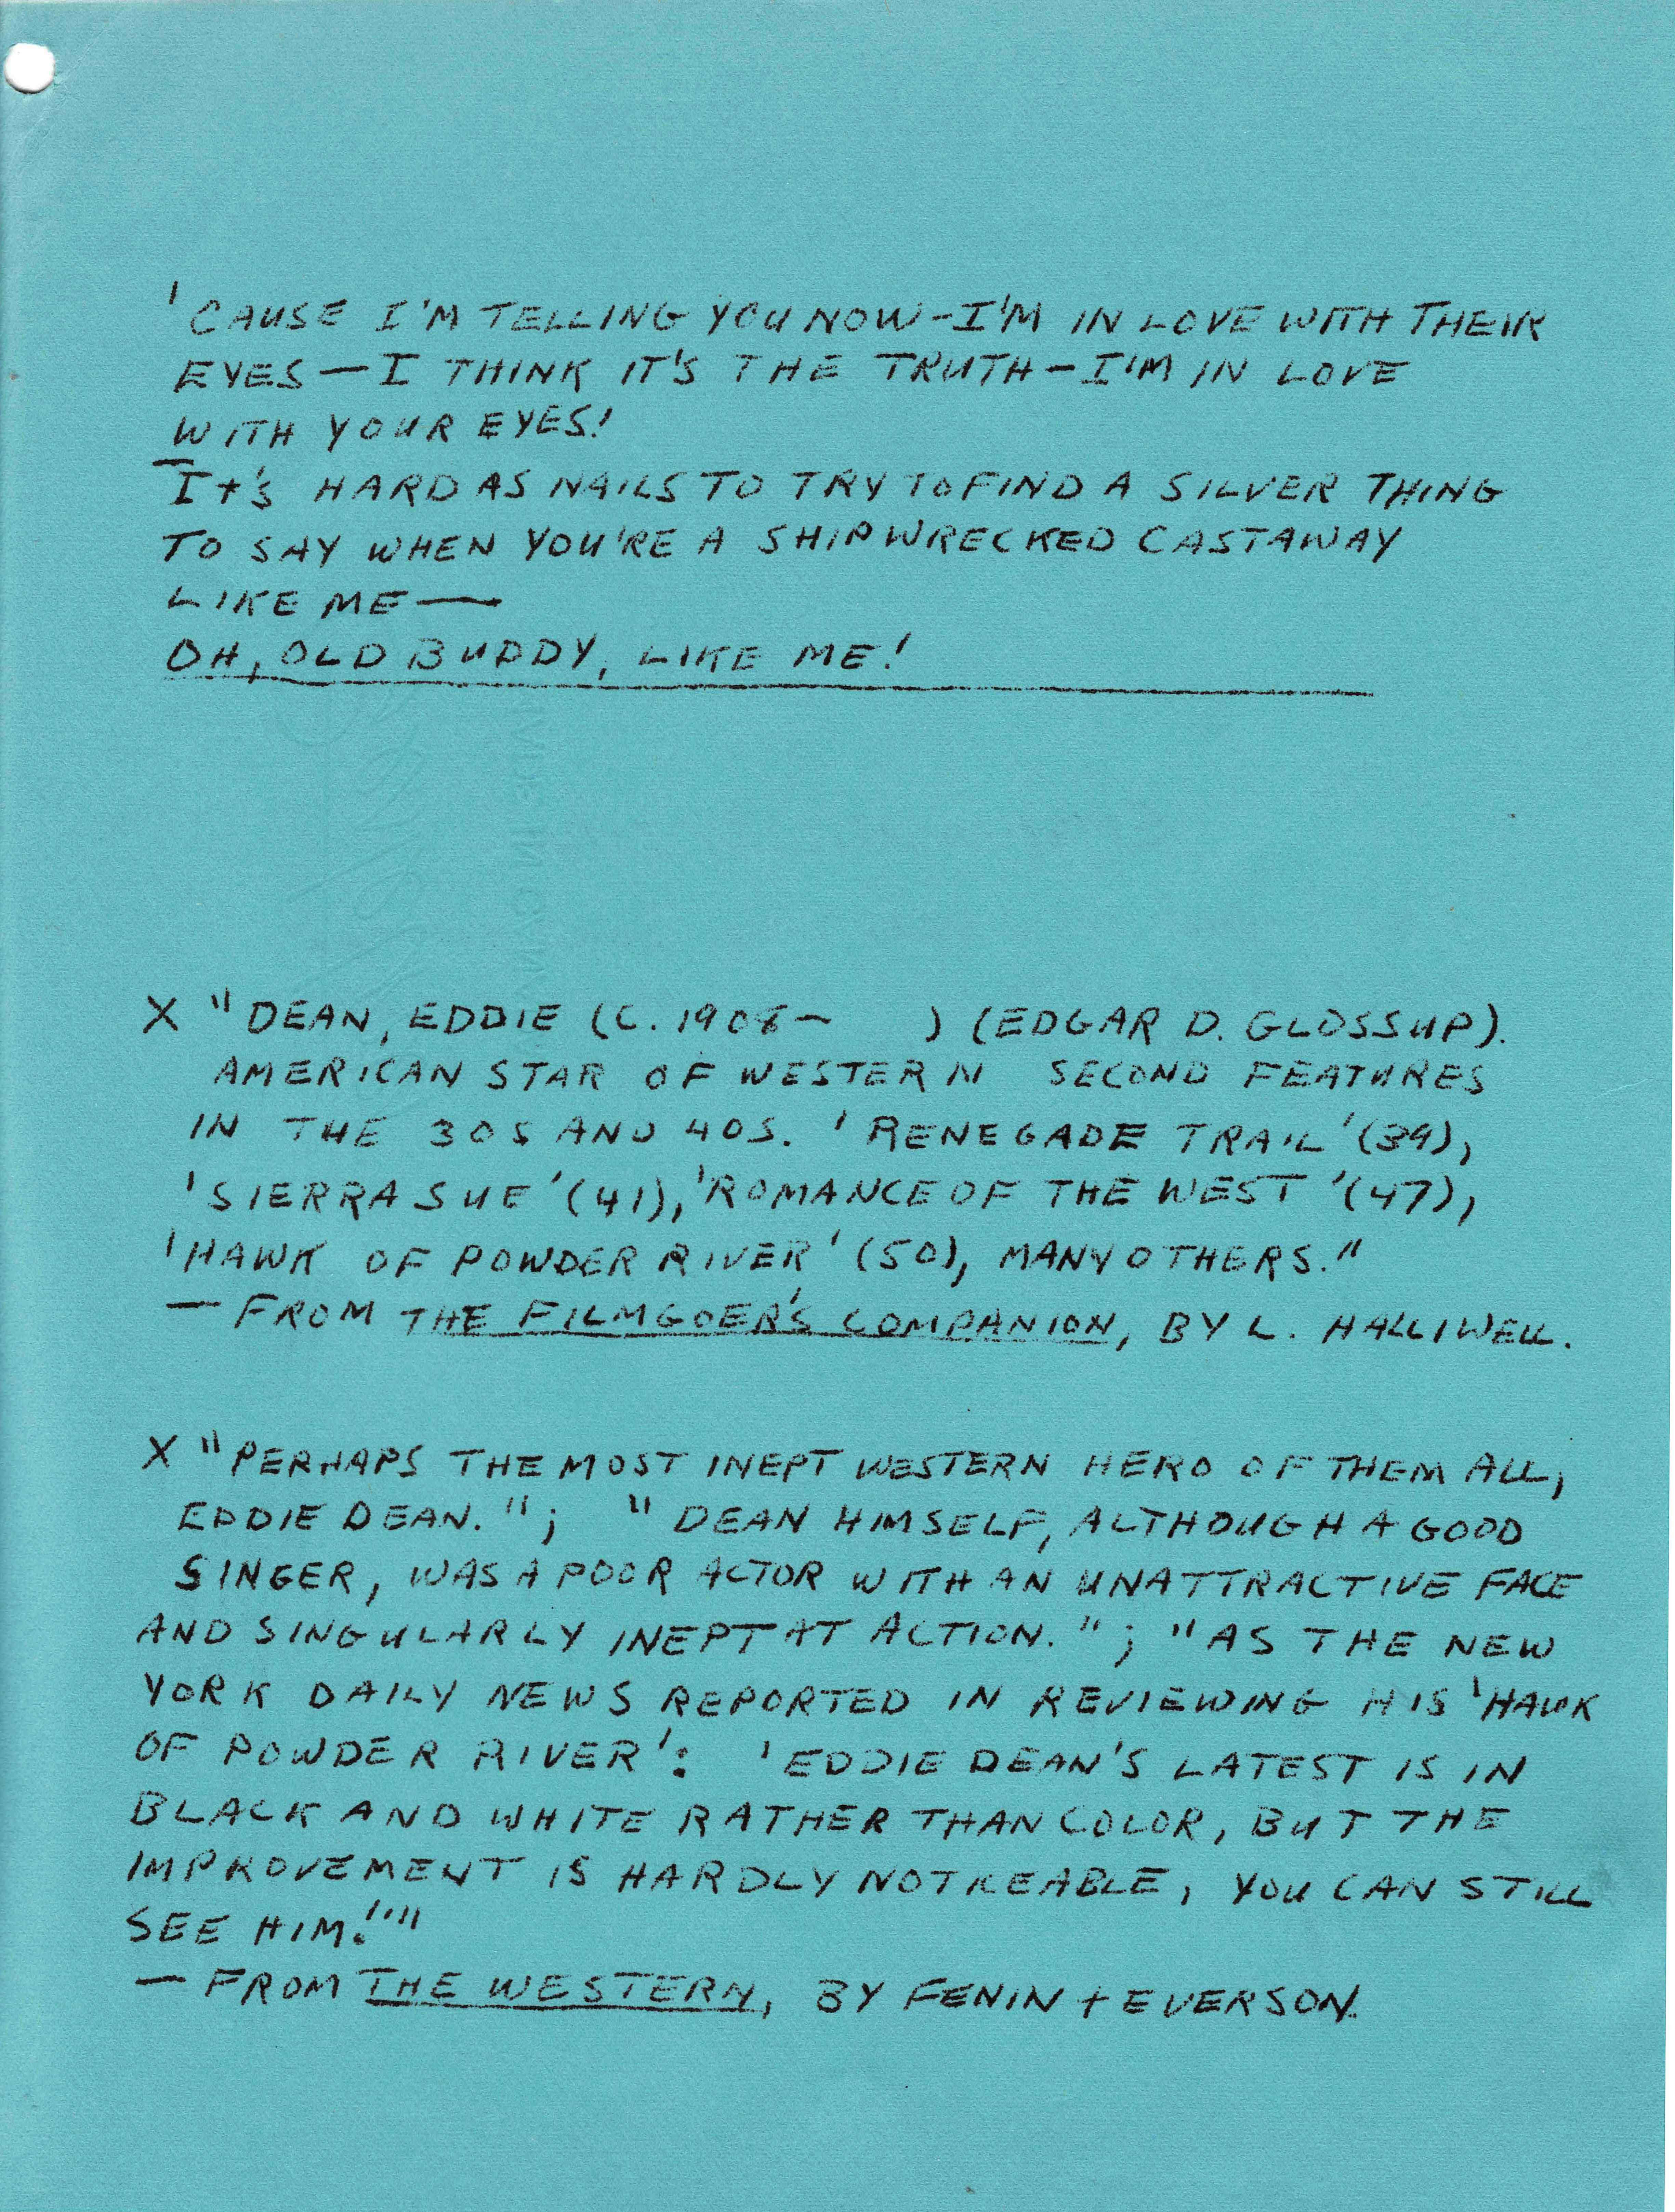 'CAUSE I'M TELLING YOU NOW-I'M IN LOVE WITH THEIR
EYES—I THINK IT'S THE TRUTH-I'M IN LOVE
WITH YOUR EYES!
It's HARD AS NAILS TO TRY TO FIND A SILVER THING
TO SAY WHEN YOU'RE A SHIPWRECKED CASTAWAY
LIKE ME—
OH, OLD BUDDY, LIKE ME!
X "DEAN, EDDIE (C. 1908- ) (EDGAR D. GLOSSUP).
AMERICAN STAR OF WESTERN SECOND FEATURES
IN THE 30S AND 40S. 'RENEGADE TRAIL' (39),
'SIERRA SUE' (41), 'ROMANCE OF THE WEST' (47),
'HAWK OF POWDER RIVER' (50), MANY OTHERS."
— FROM THE FILMGOER'S COMPANION, BY L. HALLIWELL.
X "PERHAPS THE MOST INEPT WESTERN HERO OF THEM ALL,
EDDIE DEAN."; "DEAN HIMSELF, ALTHOUGH A GOOD
SINGER, WAS A POOR ACTOR WITH AN UNATTRACTIVE FACE
AND SINGULARLY INEPT AT ACTION."; "AS THE NEW
YORK DAILY NEWS REPORTED IN REVIEWING HIS 'HAWK
OF POWDER RIVER': 'EDDIE DEAN'S LATEST IS IN
BLACK AND WHITE RATHER THAN COLOR, BUT THE
IMPROVEMENT IS HARDLY NOTICEABLE, YOU CAN STILL
SEE HIM!'"
— FROM THE WESTERN, BY FENIN + EVERSON.